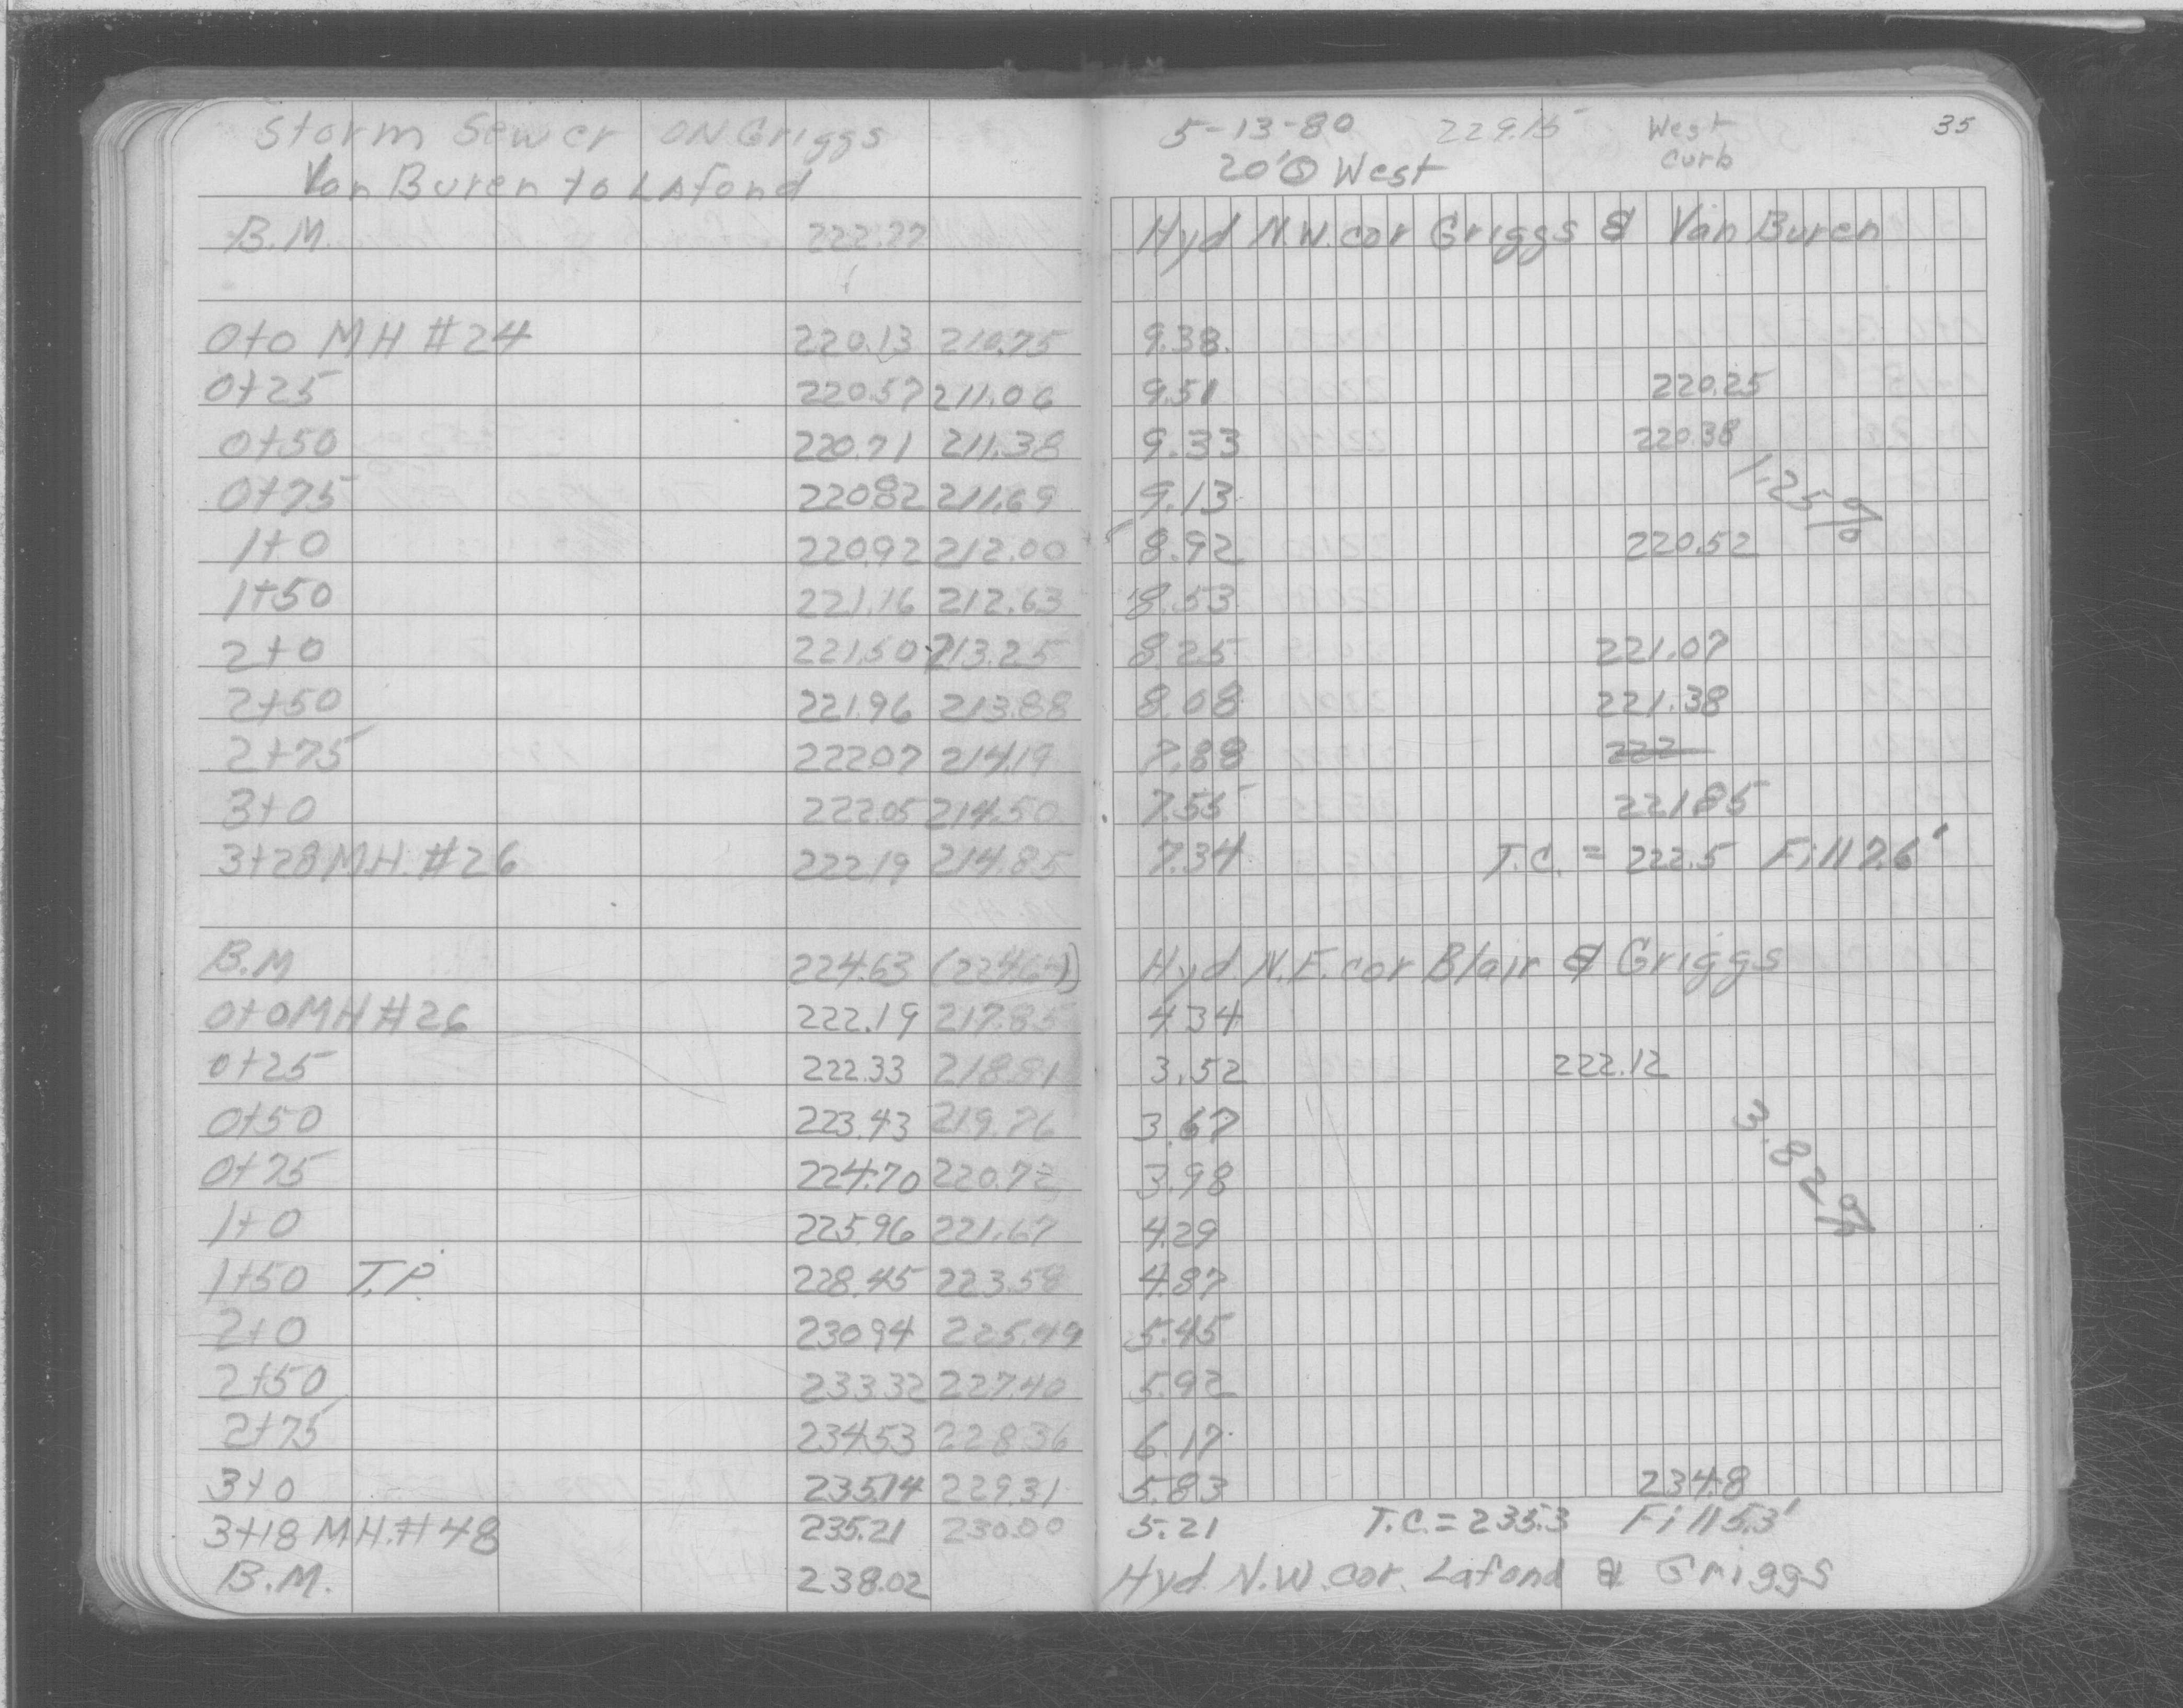 Storm Sewer ON Griggs 5-13-80 229.15 West 35
Van Buren to Lafond 20' ⊙ West Curb
B.M. 222.77 Hyd N.W. cor Griggs & Van Buren
0+0 MH #24 220.13 210.75 9.38
0+25 220.57 211.06 9.51 220.25
0+50 220.71 211.38 9.33 220.38
0+75 220.82 211.69 9.13 1.25%
1+0 220.92 212.00 8.92 220.52
1+50 221.16 212.63 8.53
2+0 221.50 213.25 8.25 221.07
2+50 221.96 213.88 8.08 221.38
2+75 222.07 214.19 7.88 222
3+0 222.05 214.50 7.55 221.85
3+28 M.H. #26 222.19 214.85 7.34 T.C. = 222.5 Fill 7.6'
B.M 224.63 (224.64) Hyd. N.E. cor Blair & Griggs
0+0 MH #26 222.19 217.85 4.34
0+25 222.33 218.81 3.52 222.12
0+50 223.43 219.76 3.67
0+75 224.70 220.72 3.98 3.82%
1+0 225.96 221.67 4.29
1+50 T.P. 228.45 223.58 4.87
2+0 230.94 225.49 5.45
2+50 233.32 227.40 5.92
2+75 234.53 228.36 6.17
3+0 235.14 229.31 5.83 234.8
3+18 M.H. #48 235.21 230.00 5.21 T.C. = 235.3 Fill 5.3'
B.M. 238.02 Hyd. N.W. cor. Lafond & Griggs